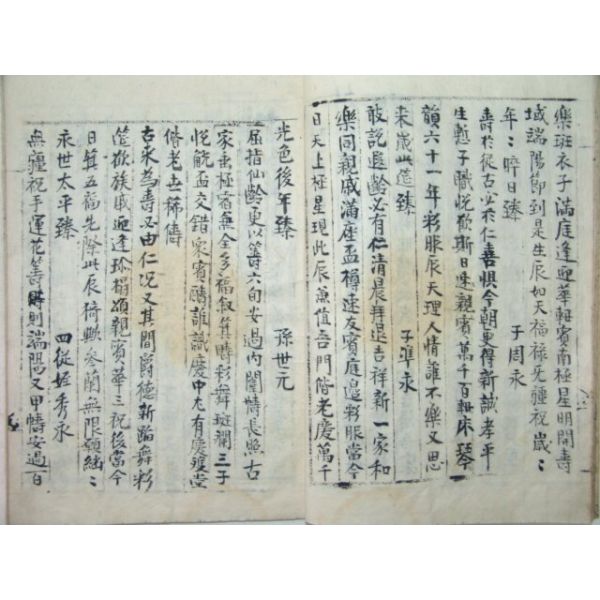 樂斑衣子滿庭逢迎華軒賓南極星明開壽
域端陽節到是生辰如天福祿无疆祝歲〻
年〻晬日臻
子周永
壽於從古必於仁喜懼今朝更得新誠孝平
生慙子職悅歡斯日速親賓萬千百軒床琴
韻六十一年彩服辰天理人情誰不樂又思
來歲此筵臻
子進永
敢說遐齡必有仁清晨拜退吉祥新一家和
樂同親戚滿座盃樽速友賓庭邊彩服當今
日天上極星現此辰兼值吾門偕老慶萬千
光色後年臻
孫世元
屈指仙齡更以籌六旬安過內闈幬長照古
家南極宿無全多福叙箕疇彩舞斑斕三子
悅觥盃交錯衆賓酬誰識慶中尤有慶雙堂
偕老世稀儔
古來為壽必由仁况又其間爵德新踰舞彩
筵歡族戚迎逢珍桐頌親賓華三祝後當今
日箕五福先際此辰猗歟參蘭無限頤綿〻
永世太平臻
四從姪秀永
無疆祝手運花籌時則端陽又甲幬安過百